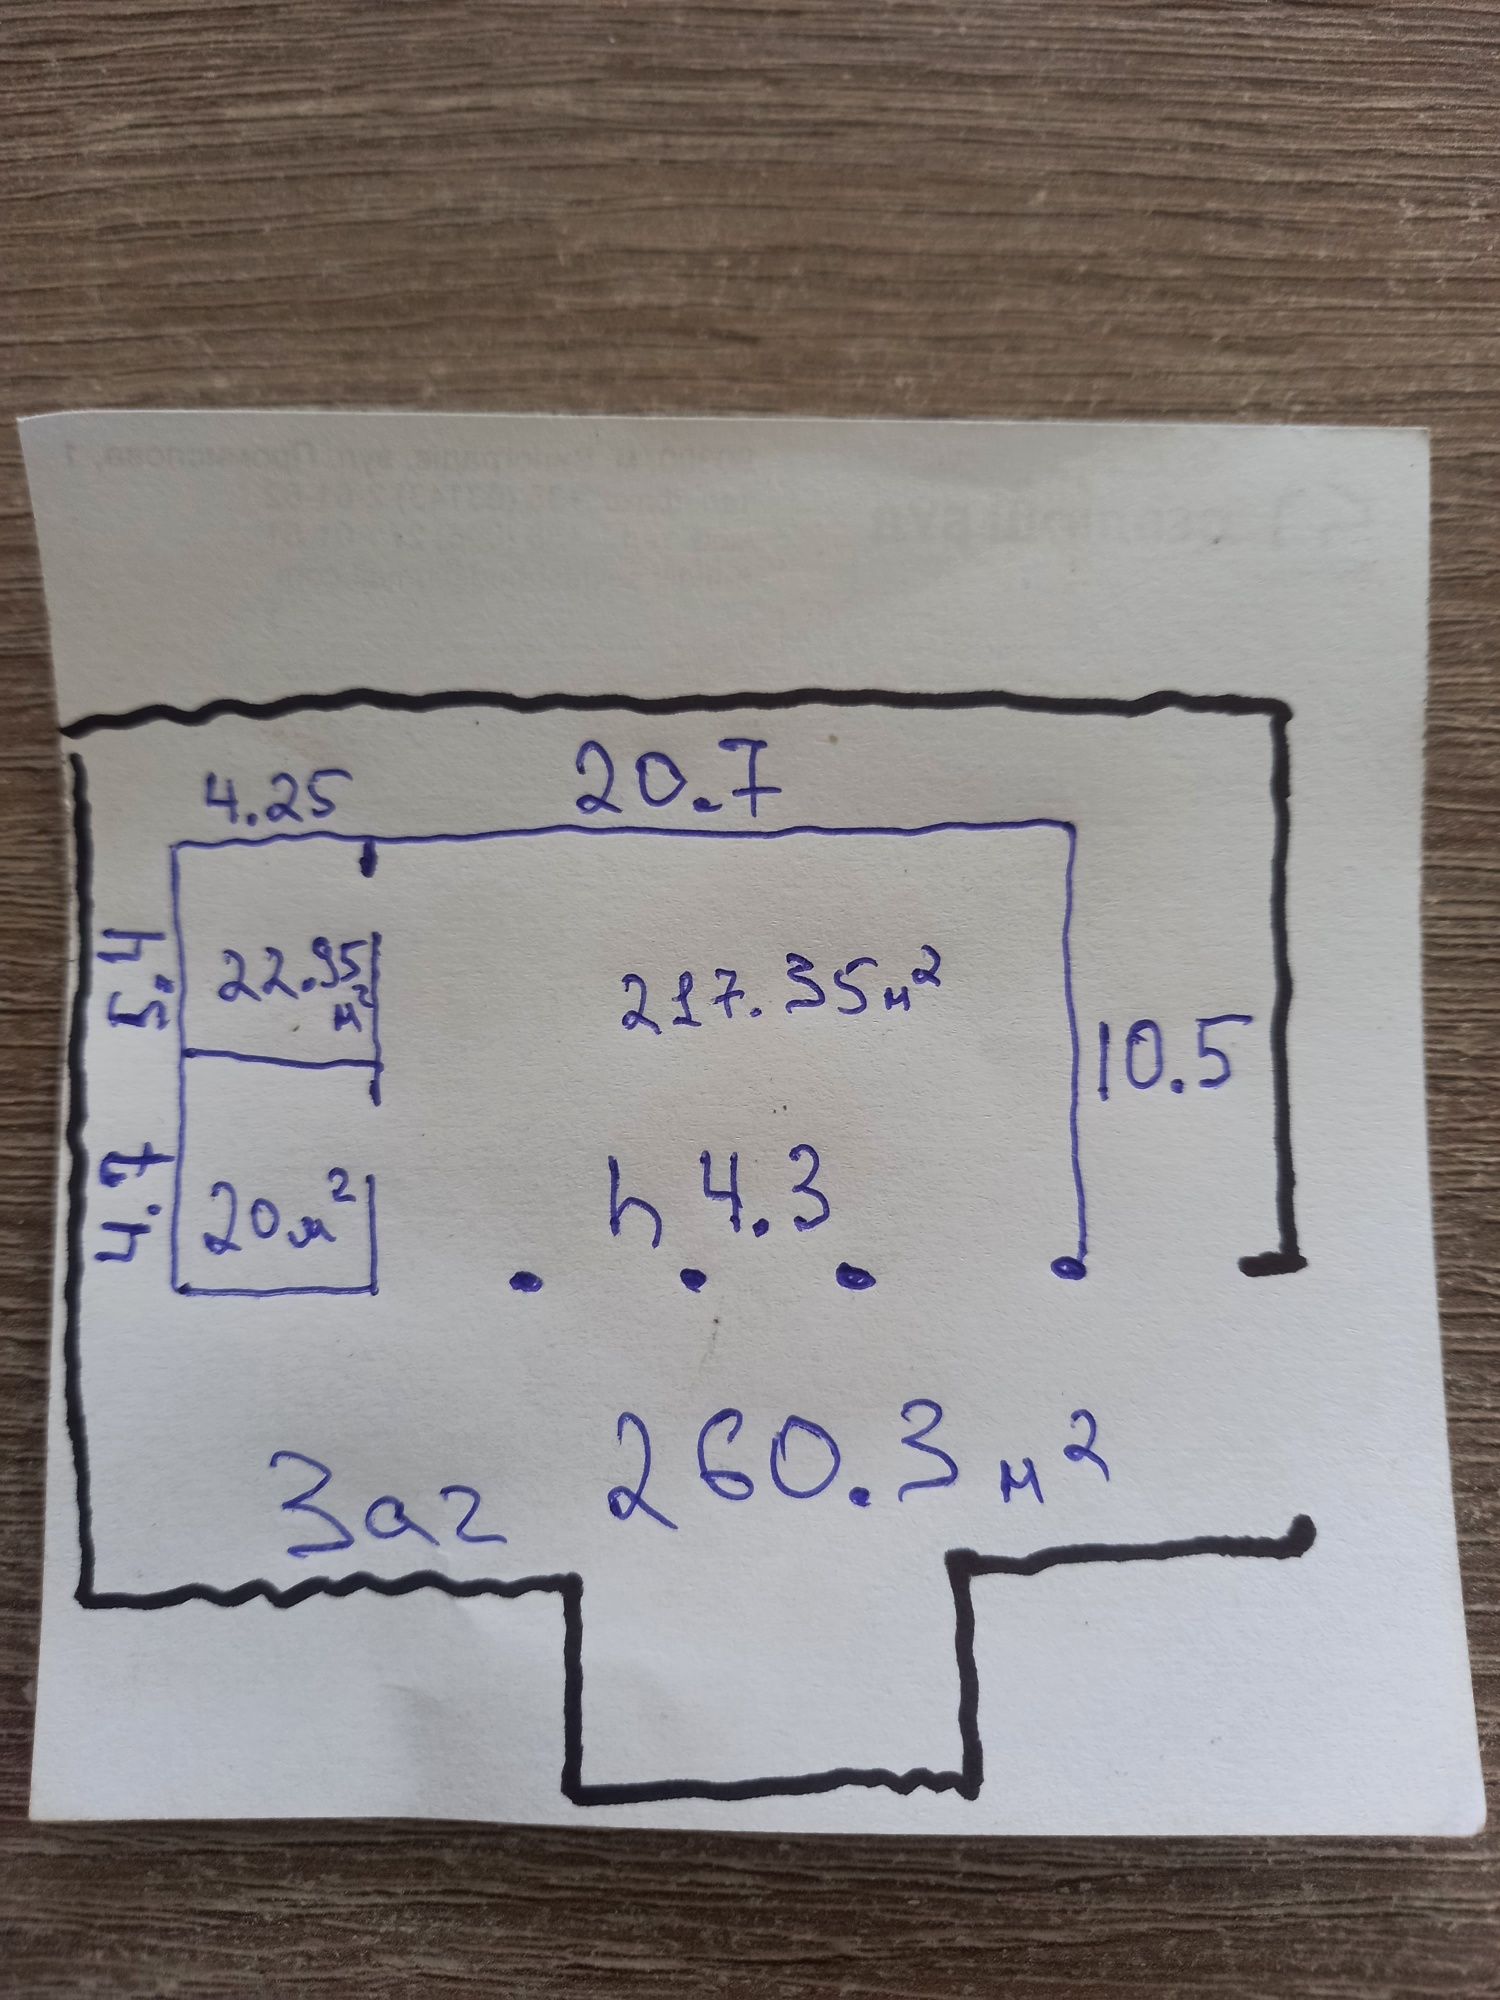 4.25
20.7
5.4
22.95
м²
217.35м²
10.5
4.7
20м²
h 4.3
Заг 260.3 м²